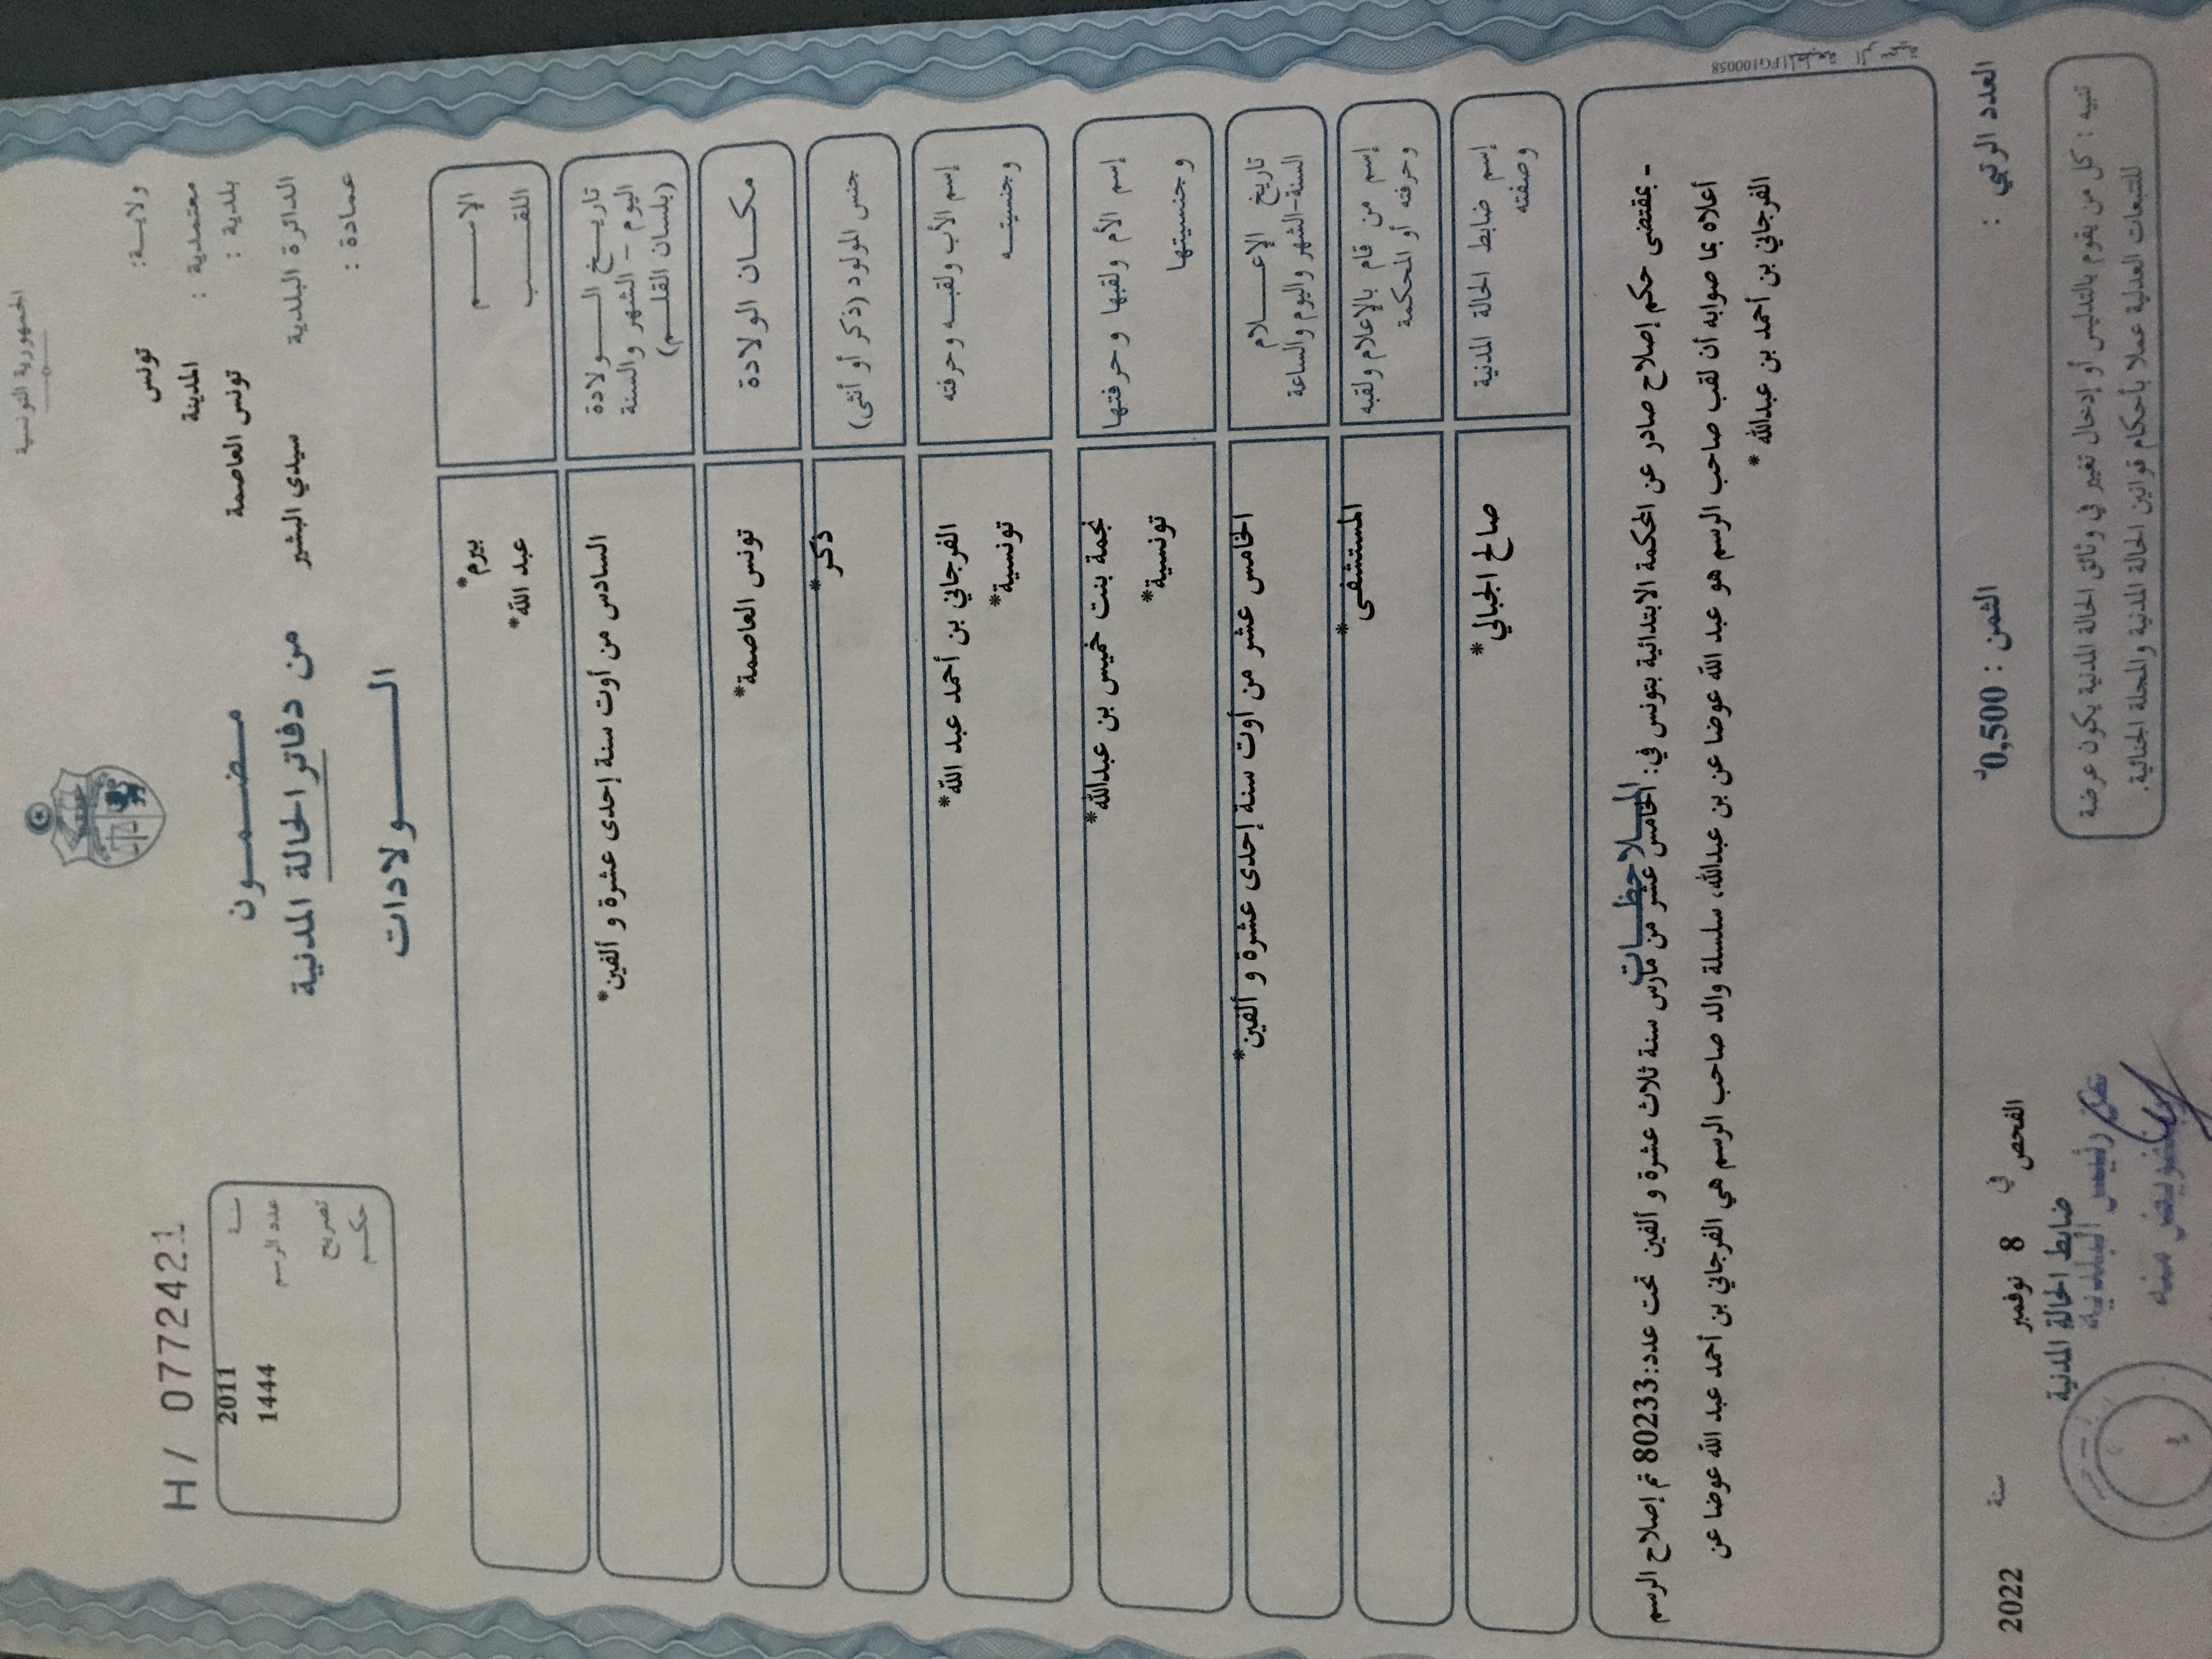 الجمهورية التونسية
ولايـــة: تونس
معتمدية : المدينة
بلدية : تونس العاصمة
الدائرة البلدية سيدي البشير
عمادة :
مضـــمـــون
من دفاتر الحالة المدنية
الـــــــولادات
H / 0772421
سنة 2011
عدد الرسم 1444
تصريح
حكـم
الإســـــم بيرم*
اللقـــــب عبد الله*
تاريـــخ الـــــولادة
اليوم - الشهر والسنة
(بلسان القلـــم)
السادس من أوت سنة إحدى عشرة و ألفين*
مكـــان الولادة تونس العاصمة*
جنس المولود (ذكر أو أنثى) ذكر*
إسم الأب ولقبـــه وحرفته الفرجاني بن أحمد عبد الله*
وجنسيتـــه تونسية*
إسم الأم ولقبها وحرفتها نجمة بنت خميس بن عبدالله*
وجنسيتها تونسية*
تاريخ الإعـــــلام
السنة-الشهر واليوم والساعة
الخامس عشر من أوت سنة إحدى عشرة و ألفين*
إسم من قام بالإعلام ولقبه
وحرفته أو المحكمة
المستشفى*
إسم ضابط الحالة المدنية
وصفته
صالح الجبالي*
الملاحظـــات
- بمقتضى حكم إصلاح صادر عن المحكمة الابتدائية بتونس في: الخامس عشر من مارس سنة ثلاث عشرة و ألفين تحت عدد:80233 تم إصلاح الرسم
أعلاه بما صوابه أن لقب صاحب الرسم هو عبد الله عوضا عن بن عبدالله، سلسلة والد صاحب الرسم هي الفرجاني بن أحمد عبد الله عوضا عن
الفرجاني بن أحمد بن عبدالله*
FG100058
العدد الرتبي :
الثمن : 0,500د
الفحص في 8 نوفمبر سنة 2022
ضابط الحالة المدنية
عن رئيس البلدية
بتفويض منه
تنبيه : كل من يقوم بالتدليس أو إدخال تغيير في وثائق الحالة المدنية يكون عرضة
للتتبعات العدلية عملا بأحكام قوانين الحالة المدنية والمجلة الجنائية.